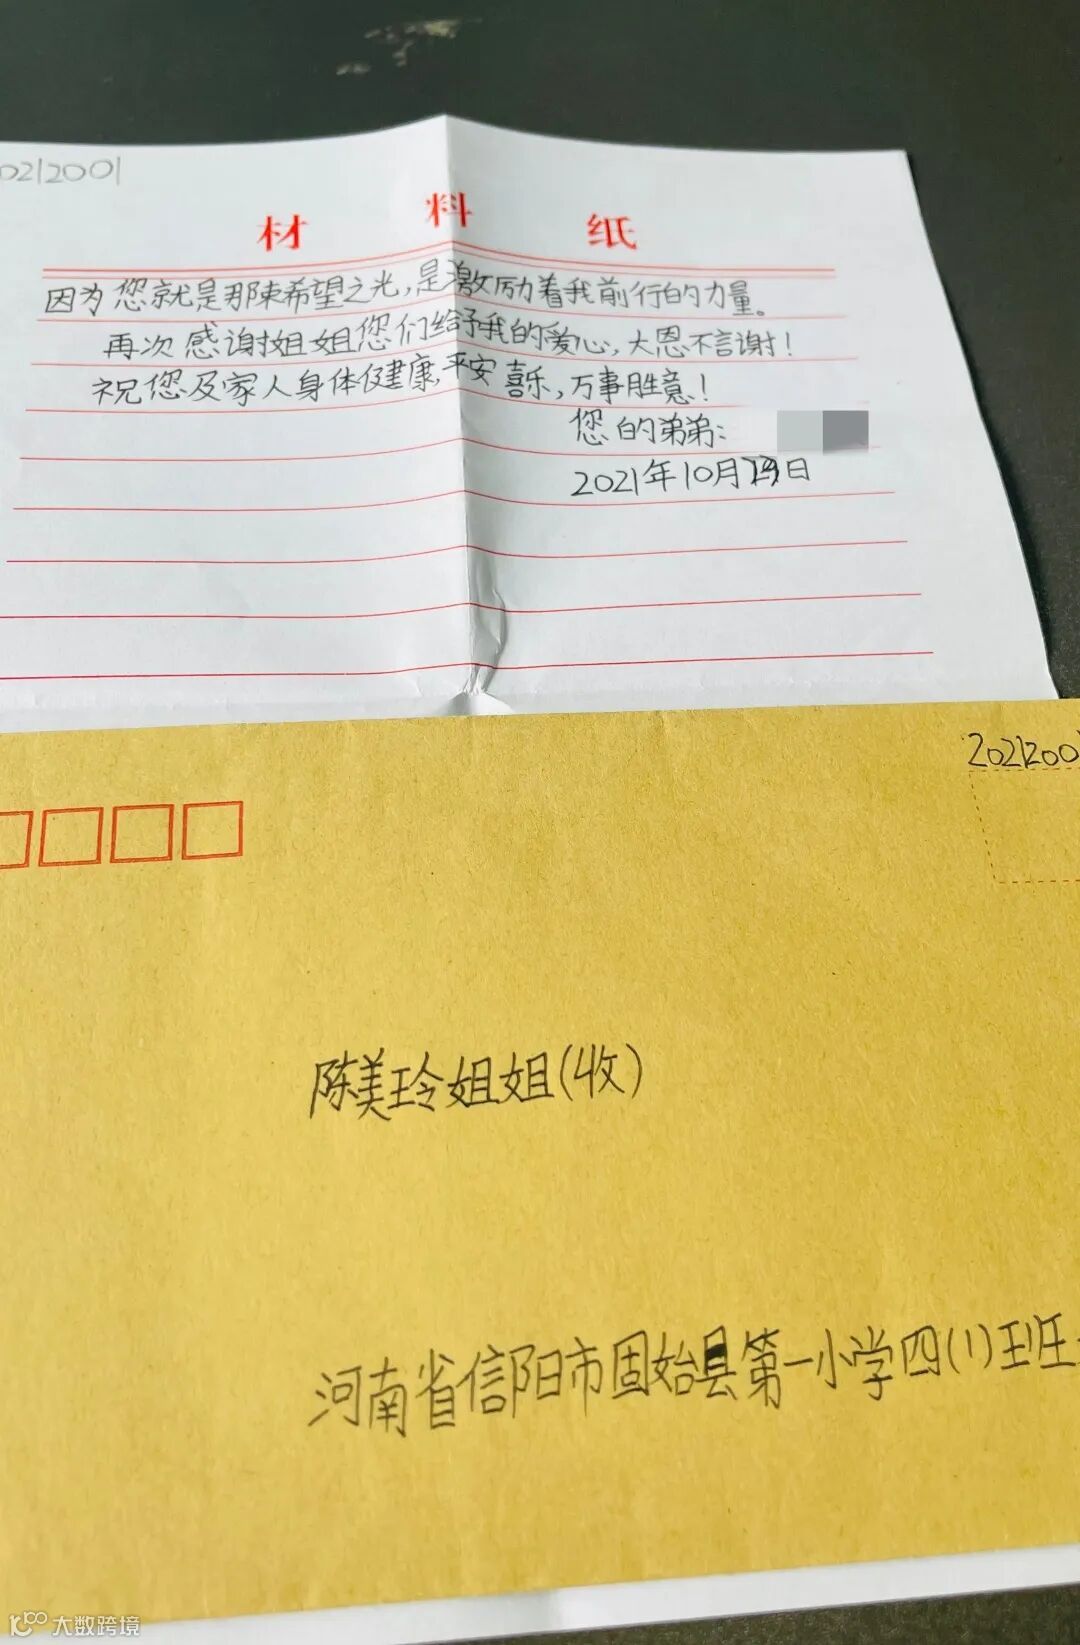 0212001
材料纸
因为您就是那束希望之光,是激励着我前行的力量。
再次感谢姐姐您们给予我的爱心,大恩不言谢!
祝您及家人身体健康,平安喜乐,万事胜意!
您的弟弟:
2021年10月 日
2021200
陈美玲姐姐(收)
河南省信阳市固始县第一小学四(1)班
大数跨境